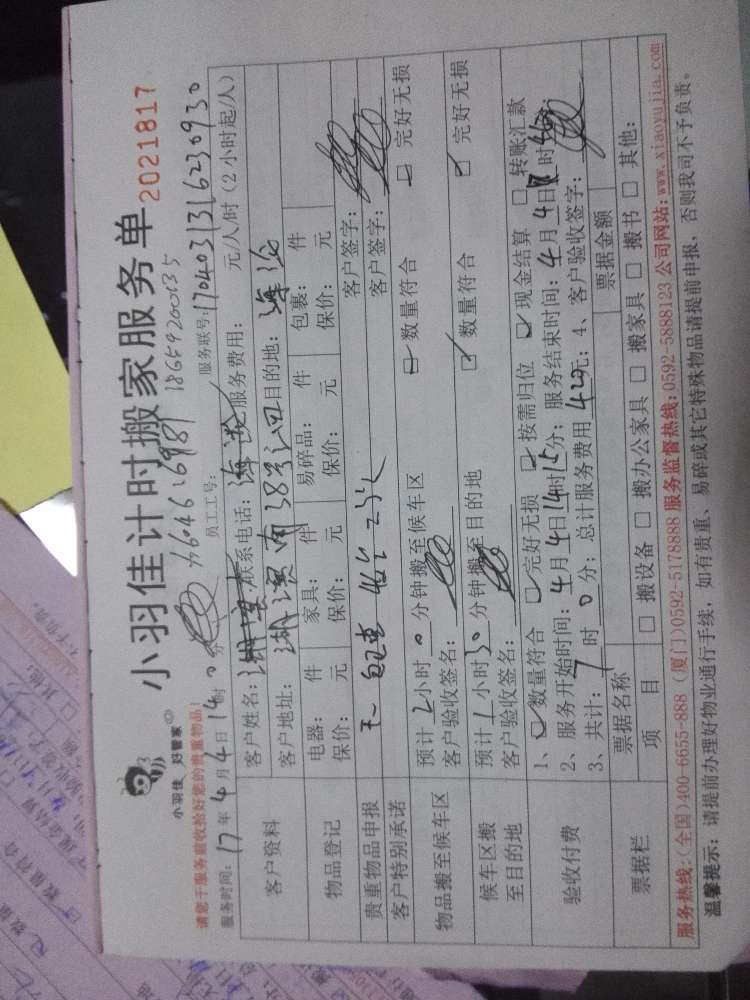 小羽佳计时搬家服务单
2021817
小羽佳 好管家
18659200135
请您于服务前收拾好您的贵重物品!
员工工号:
服务联号:170403131623 0930
服务时间:17年4月4日14时0分
服务费用: 元/人/时(2小时起/人)
客户资料
客户姓名: 联系电话:
客户地址: 湖滨南38号 目的地: 海沧
物品登记
电器: 件 家具: 件 易碎品: 件 包裹: 件
保价: 元 保价: 元 保价: 元 保价: 元
贵重物品申报
客户签字:
客户特别承诺
客户签字:
物品搬至候车区
预计2小时0分钟搬至候车区 数量符合 完好无损
客户验收签名:
候车区搬至目的地
预计1小时30分钟搬至目的地 数量符合 完好无损
客户验收签名:
验收付费
1、数量符合 完好无损 按需归位 现金结算 转账汇款
2、服务开始时间:4月4日14时15分; 服务结束时间:4月4日 时
3、共计: 时0分; 总计服务费用420元; 4、客户验收签字:
票据栏
票据名称 票据金额
项目 搬设备 搬办公家具 搬家具 搬书 其他:
服务热线:(全国)400-6655-888 (厦门)0592-5178888 服务监督热线:0592-5888123 公司网站:www.xiaoyujia.com
温馨提示: 请提前办理好物业通行手续, 如有贵重、易碎或其它特殊物品请提前申报, 否则我司不予负责。